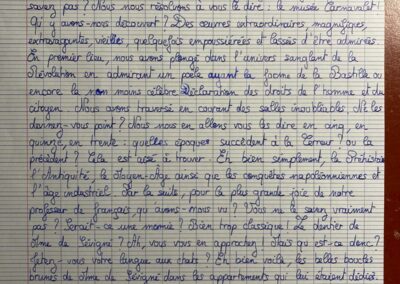 savez pas ? Nous nous résolvons à vous le dire : le musée Carnavalet !
Qu'y avons-nous découvert ? Des œuvres extraordinaires, magnifiques,
extravagantes, vieilles, quelquefois empoussiérées et lassées d'être admirées.
En premier lieu, nous avons plongé dans l'univers sanglant de la
Révolution en admirant un poêle ayant la forme de la Bastille ou
encore la non moins célèbre Déclaration des droits de l'homme et du
citoyen. Nous avons traversé en courant des salles inoubliables. Ne les
devinez-vous point ? Nous nous en allons vous les dire en cinq, en
quinze, en trente : quelles époques succèdent à la Terreur ou la
précèdent ? Cela est aisé à trouver. Eh bien simplement, la Préhistoire
l'Antiquité, le Moyen-Âge ainsi que les conquêtes napoléoniennes et
l'âge industriel. Par la suite, pour la plus grande joie de notre
professeur de français, qu'avons-nous vu ? Vous ne le savez vraiment
pas ? Serait-ce une momie ? Bien trop classique ! Le dentier de
Mme de Sévigné ? Ah, vous vous en approchez ! Mais qu'est-ce donc ?
Jetez-vous votre langue aux chats ? Eh bien voilà, les belles boucles
brunes de Mme de Sévigné dans les appartements qui lui étaient dédiés.